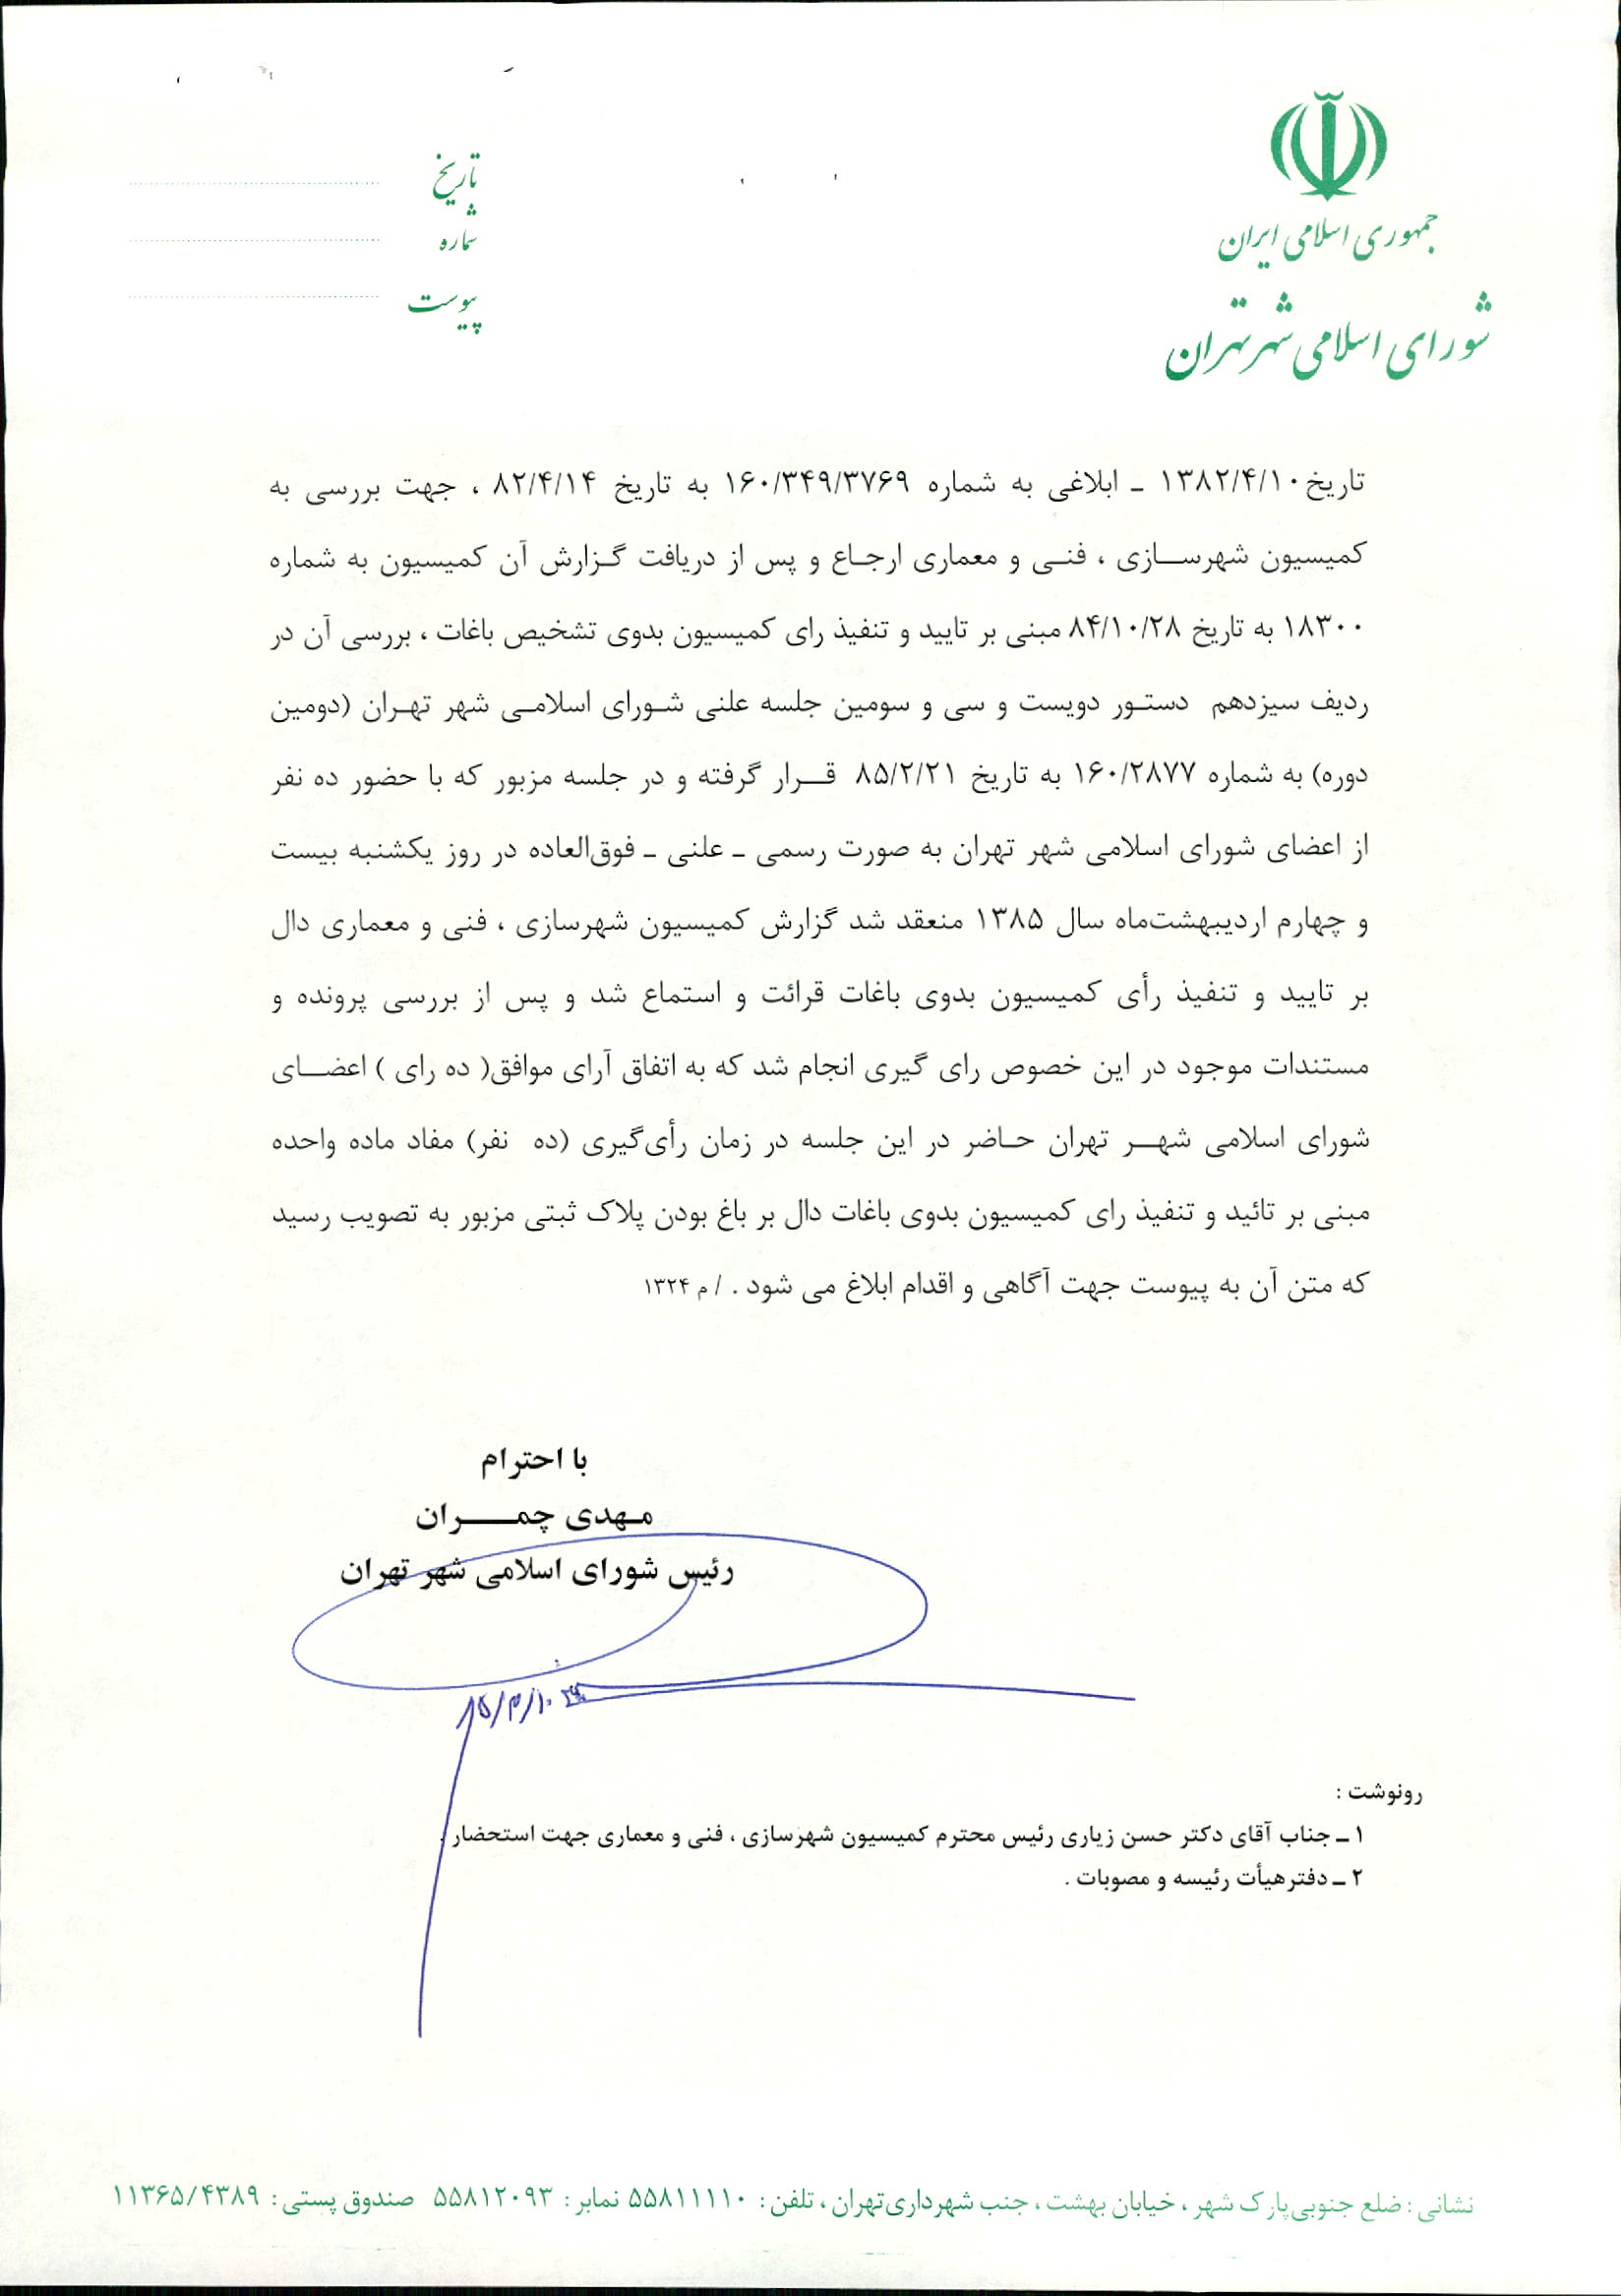 جمهوری اسلامی ایران
شورای اسلامی شهر تهران
تاریخ
شماره
پیوست
تاریخ ۱۳۸۲/۴/۱۰ ـ ابلاغی به شماره ۱۶۰/۳۴۹/۳۷۶۹ به تاریخ ۸۲/۴/۱۴ ، جهت بررسی به
کمیسیون شهرسازی ، فنی و معماری ارجاع و پس از دریافت گزارش آن کمیسیون به شماره
۱۸۳۰۰ به تاریخ ۸۴/۱۰/۲۸ مبنی بر تایید و تنفیذ رای کمیسیون بدوی تشخیص باغات ، بررسی آن در
ردیف سیزدهم دستور دویست و سی و سومین جلسه علنی شورای اسلامی شهر تهران (دومین
دوره) به شماره ۱۶۰/۲۸۷۷ به تاریخ ۸۵/۲/۲۱ قرار گرفته و در جلسه مزبور که با حضور ده نفر
از اعضای شورای اسلامی شهر تهران به صورت رسمی ـ علنی ـ فوق‌العاده در روز یکشنبه بیست
و چهارم اردیبهشت‌ماه سال ۱۳۸۵ منعقد شد گزارش کمیسیون شهرسازی ، فنی و معماری دال
بر تایید و تنفیذ رأی کمیسیون بدوی باغات قرائت و استماع شد و پس از بررسی پرونده و
مستندات موجود در این خصوص رای گیری انجام شد که به اتفاق آرای موافق( ده رای ) اعضای
شورای اسلامی شهر تهران حاضر در این جلسه در زمان رأی‌گیری (ده نفر) مفاد ماده واحده
مبنی بر تائید و تنفیذ رای کمیسیون بدوی باغات دال بر باغ بودن پلاک ثبتی مزبور به تصویب رسید
که متن آن به پیوست جهت آگاهی و اقدام ابلاغ می شود . / م ۱۳۲۴
با احترام
مهدی چمران
رئیس شورای اسلامی شهر تهران
رونوشت :
۱ ـ جناب آقای دکتر حسن زیاری رئیس محترم کمیسیون شهرسازی ، فنی و معماری جهت استحضار .
۲ ـ دفترهیأت رئیسه و مصوبات .
نشانی : ضلع جنوبی‌پارک شهر ، خیابان بهشت ، جنب شهرداری‌تهران ، تلفن : ۵۵۸۱۱۱۱۰ نمابر : ۵۵۸۱۲۰۹۳ صندوق پستی : ۱۱۳۶۵/۴۳۸۹